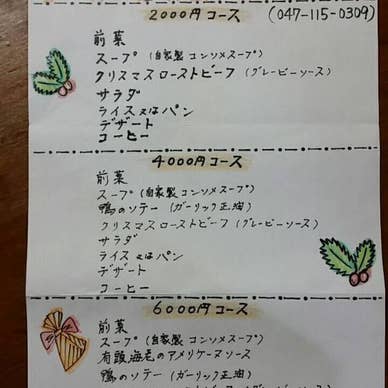 2000円コース (047-115-0309)
前菜
スープ (自家製コンソメスープ)
クリスマスローストビーフ (グレービーソース)
サラダ
ライス又はパン
デザート
コーヒー
4000円コース
前菜
スープ (自家製コンソメスープ)
鴨のソテー (ガーリック正油)
クリスマスローストビーフ (グレービーソース)
サラダ
ライス又はパン
デザート
コーヒー
6000円コース
前菜
スープ (自家製コンソメスープ)
有頭海老のアメリケーヌソース
鴨のソテー (ガーリック正油)